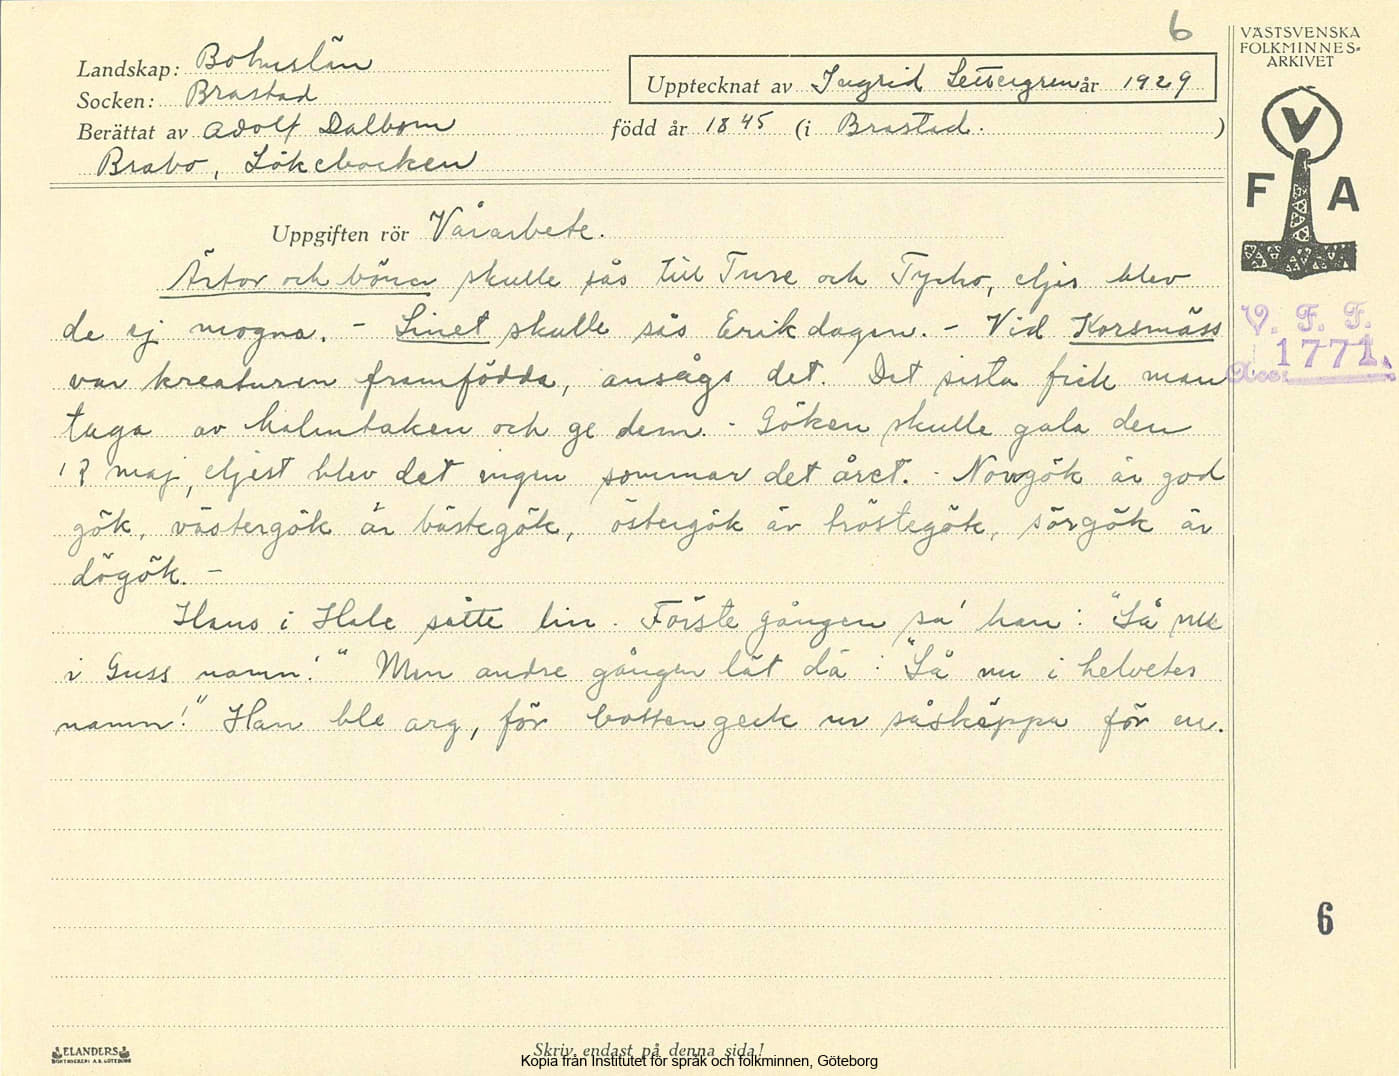 6
VÄSTSVENSKA
FOLKMINNES-
ARKIVET
Landskap: Bohuslän
Socken: Brastad
Upptecknat av Ingrid Settergren år 1929
Berättat av Adolf Dalbom född år 1845 (i Brastad. )
Brabo, Lökebacken
V
F A
Uppgiften rör Vårarbete.
Ärtor och bönor skulle sås till Ture och Tycho, eljes blev
de ej mogna. - Linet skulle sås Erikdagen. - Vid Korsmäss
var kreaturen framfödda, ansågs det. Det sista fick man
taga av halmtaken och ge dem. - Göken skulle gala den
1? maj, eljest blev det ingen sommar det året. - Norrgök är god
gök, västergök är bästegök, östergök är tröstegök, sörgök är
dögök. -
Hans i Hale sätte lin. Förste gången sa' han: "Så nu
i Guss namn!" Men andre gången lät dä: "Så nu i helvetes
namn!" Han ble arg, för botten geck ur såskäppa för en.
V. F. F.
Acc: 1771.
6
ELANDERS
BOKTRYCKERI A.B. GÖTEBORG
Skriv endast på denna sida!
Kopia från Institutet för språk och folkminnen, Göteborg